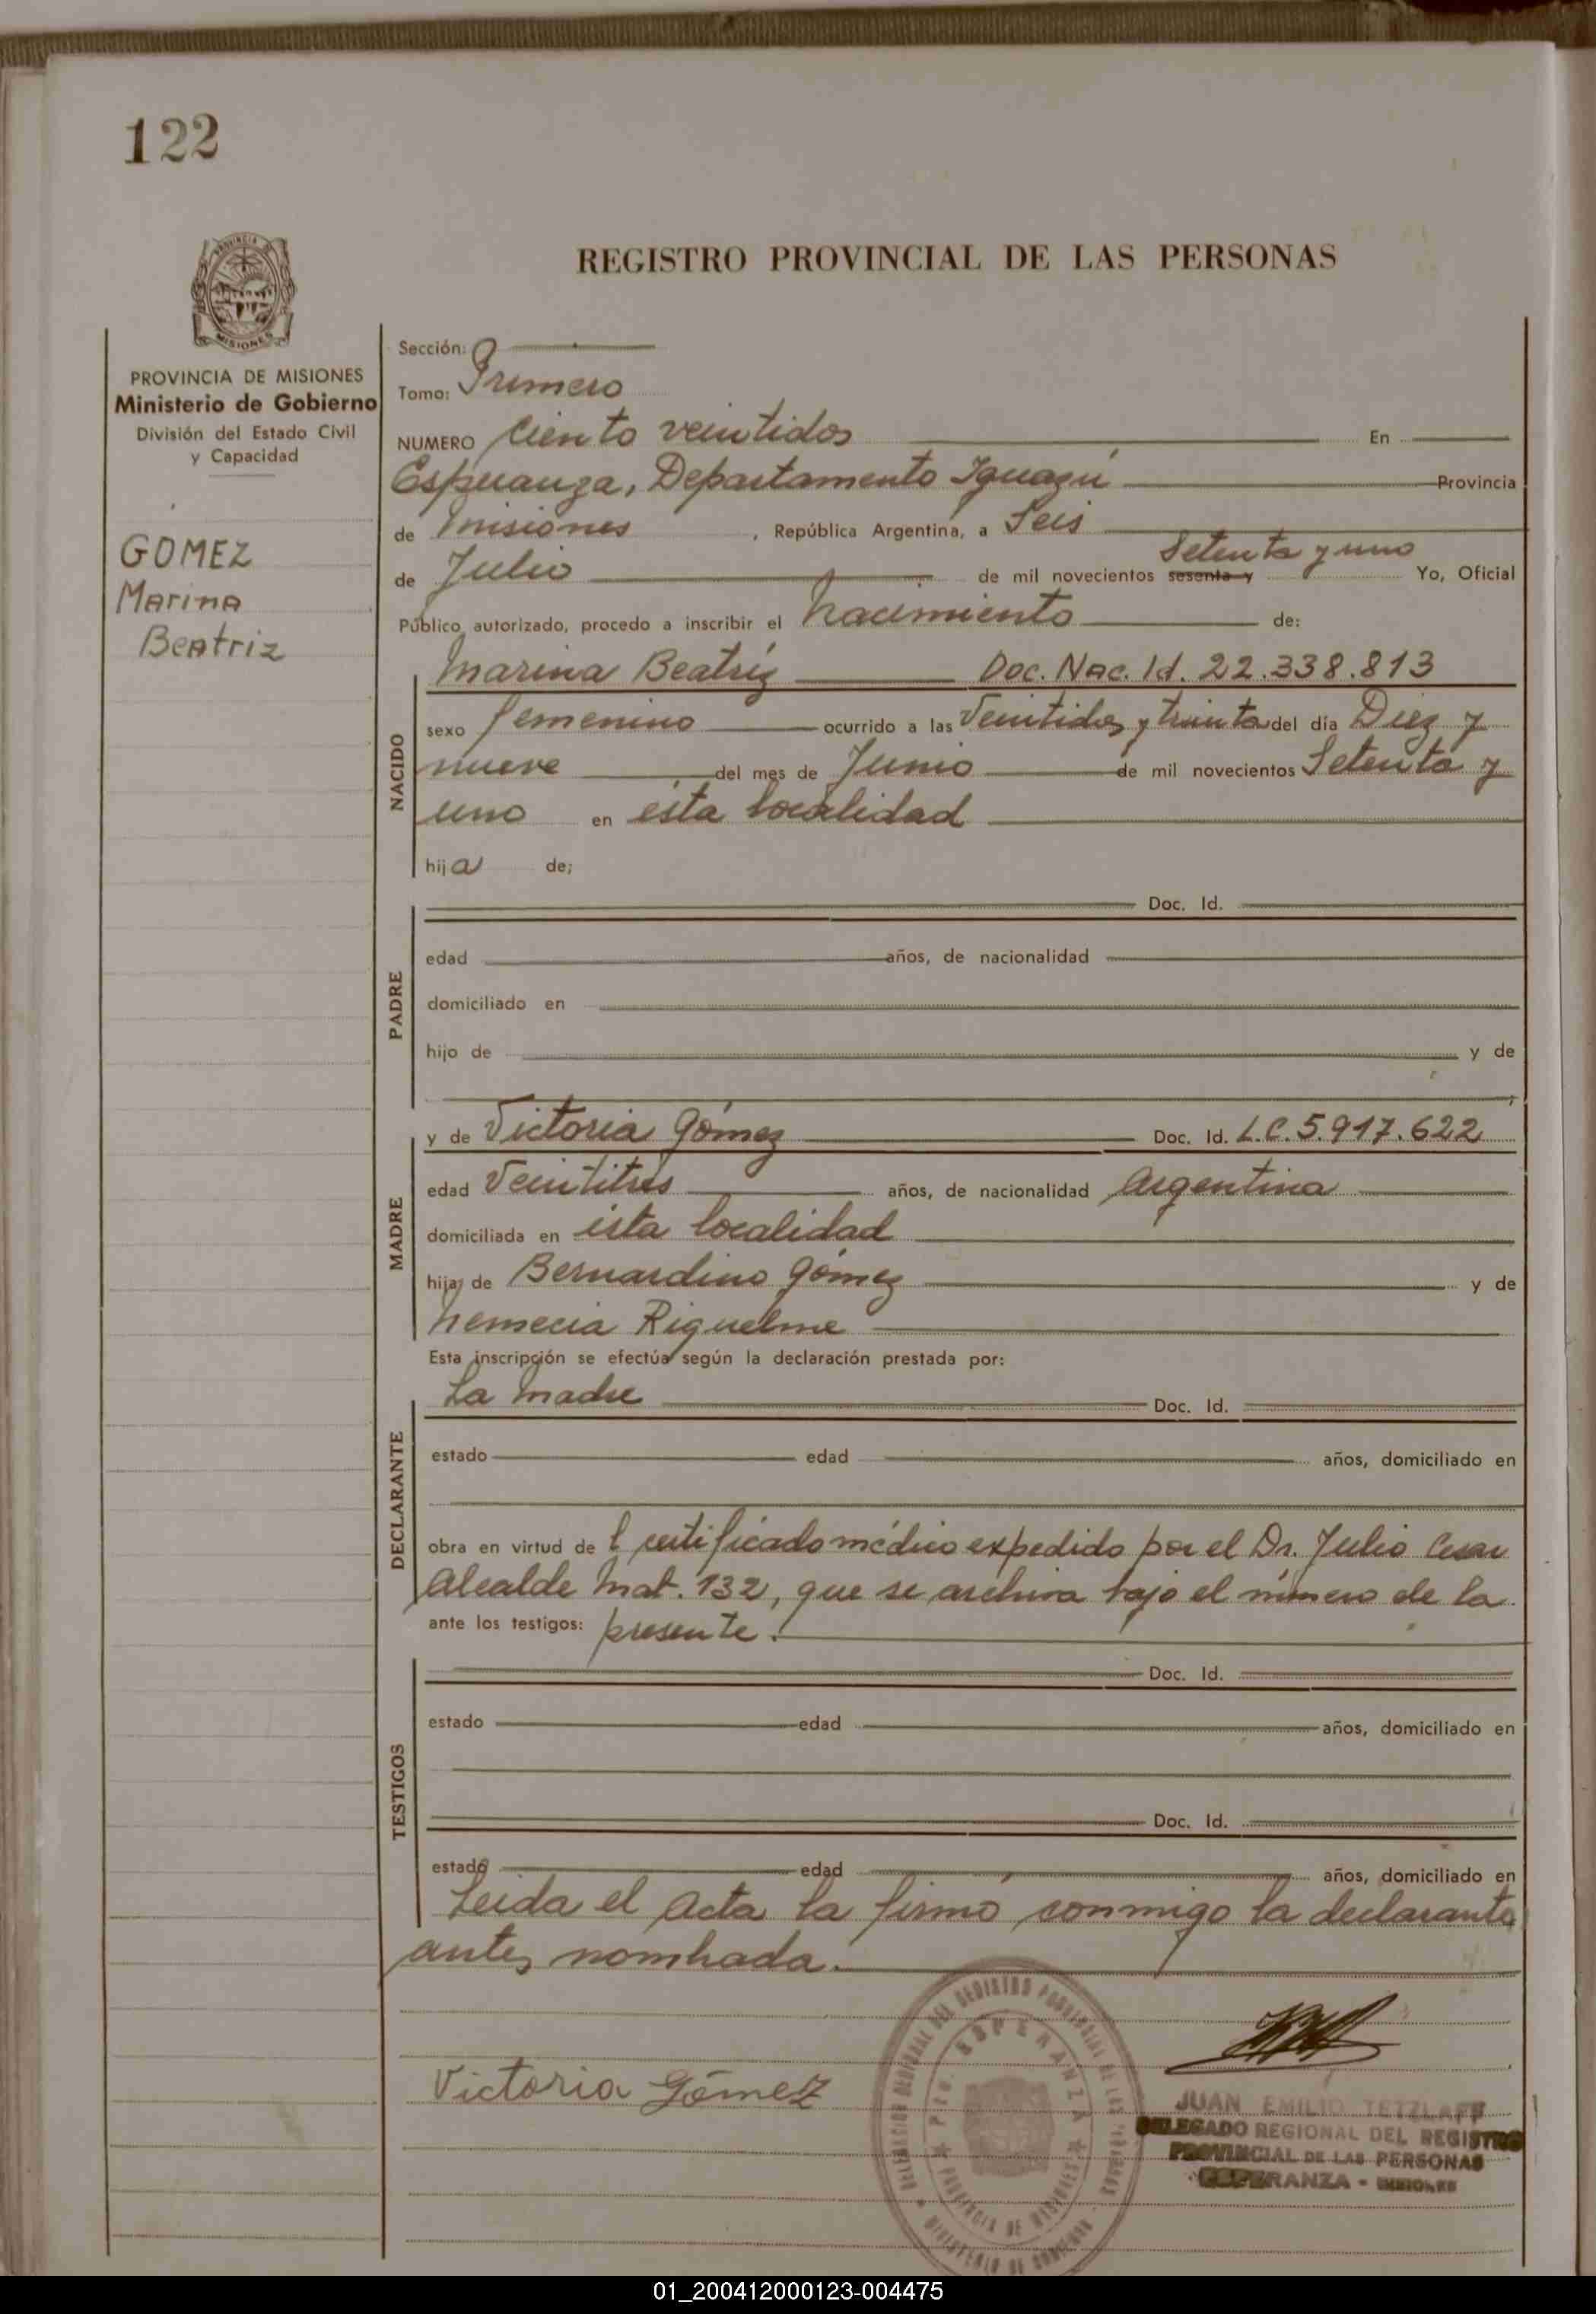 122
REGISTRO PROVINCIAL DE LAS PERSONAS
MISIONES
PROVINCIA DE MISIONES
Ministerio de Gobierno
División del Estado Civil
y Capacidad
GOMEZ
Marina
Beatriz
Sección:
Tomo: Primero
NUMERO Ciento veintidos En
Esperanza, Departamento Iguazú Provincia
de Misiones , República Argentina, a Seis
de Julio de mil novecientos sesenta y Setenta y uno Yo, Oficial
Público autorizado, procedo a inscribir el Nacimiento de:
NACIDO
Marina Beatríz Doc. Nac. Id. 22.338.813
sexo femenino ocurrido a las Veintidos y treinta del día Diez y
nueve del mes de Junio de mil novecientos Setenta y
uno en ésta localidad
hija de;
PADRE
Doc. Id.
edad años, de nacionalidad
domiciliado en
hijo de y de
MADRE
y de Victoria Gómez Doc. Id. L.C. 5.917.622
edad Veintitres años, de nacionalidad Argentina
domiciliada en ésta localidad
hija de Bernardino Gómez y de
Nemecia Riquelme
Esta inscripción se efectúa según la declaración prestada por:
DECLARANTE
La Madre Doc. Id.
estado edad años, domiciliado en
obra en virtud de l certificado médico expedido por el Dr. Julio Cesar
Alcalde Mat. 132, que se archiva bajo el número de la
ante los testigos: presente.
TESTIGOS
Doc. Id.
estado edad años, domiciliado en
Doc. Id.
estado edad años, domiciliado en
Leida el Acta la firmó conmigo la declarante
antes nombrada.
Victoria Gómez
ESPERANZA
PROVINCIA DE MISIONES
JUAN EMILIO TETZLAFF
DELEGADO REGIONAL DEL REGISTRO
PROVINCIAL DE LAS PERSONAS
ESPERANZA - MISIONES
01_200412000123-004475